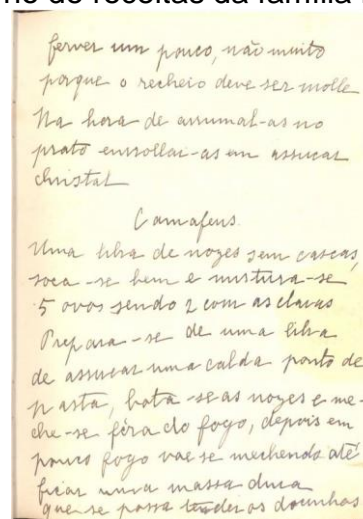 no de receitas da família
ferver um pouco, não muito
porque o recheio deve ser molle
Na hora de arrumal-as no
prato enrollar-as em assucar
christal
Camafeus.
Uma libra de nozes sem cascas,
soca-se bem e mistura-se
5 ovos sendo 2 com as claras
Prepara-se de uma libra
de assucar uma calda ponto de
pasta, bota-se as nozes e me-
che-se fóra do fogo, depois em
pouco fogo vae se mechendo até
ficar uma massa dura
que se possa tender os docinhos